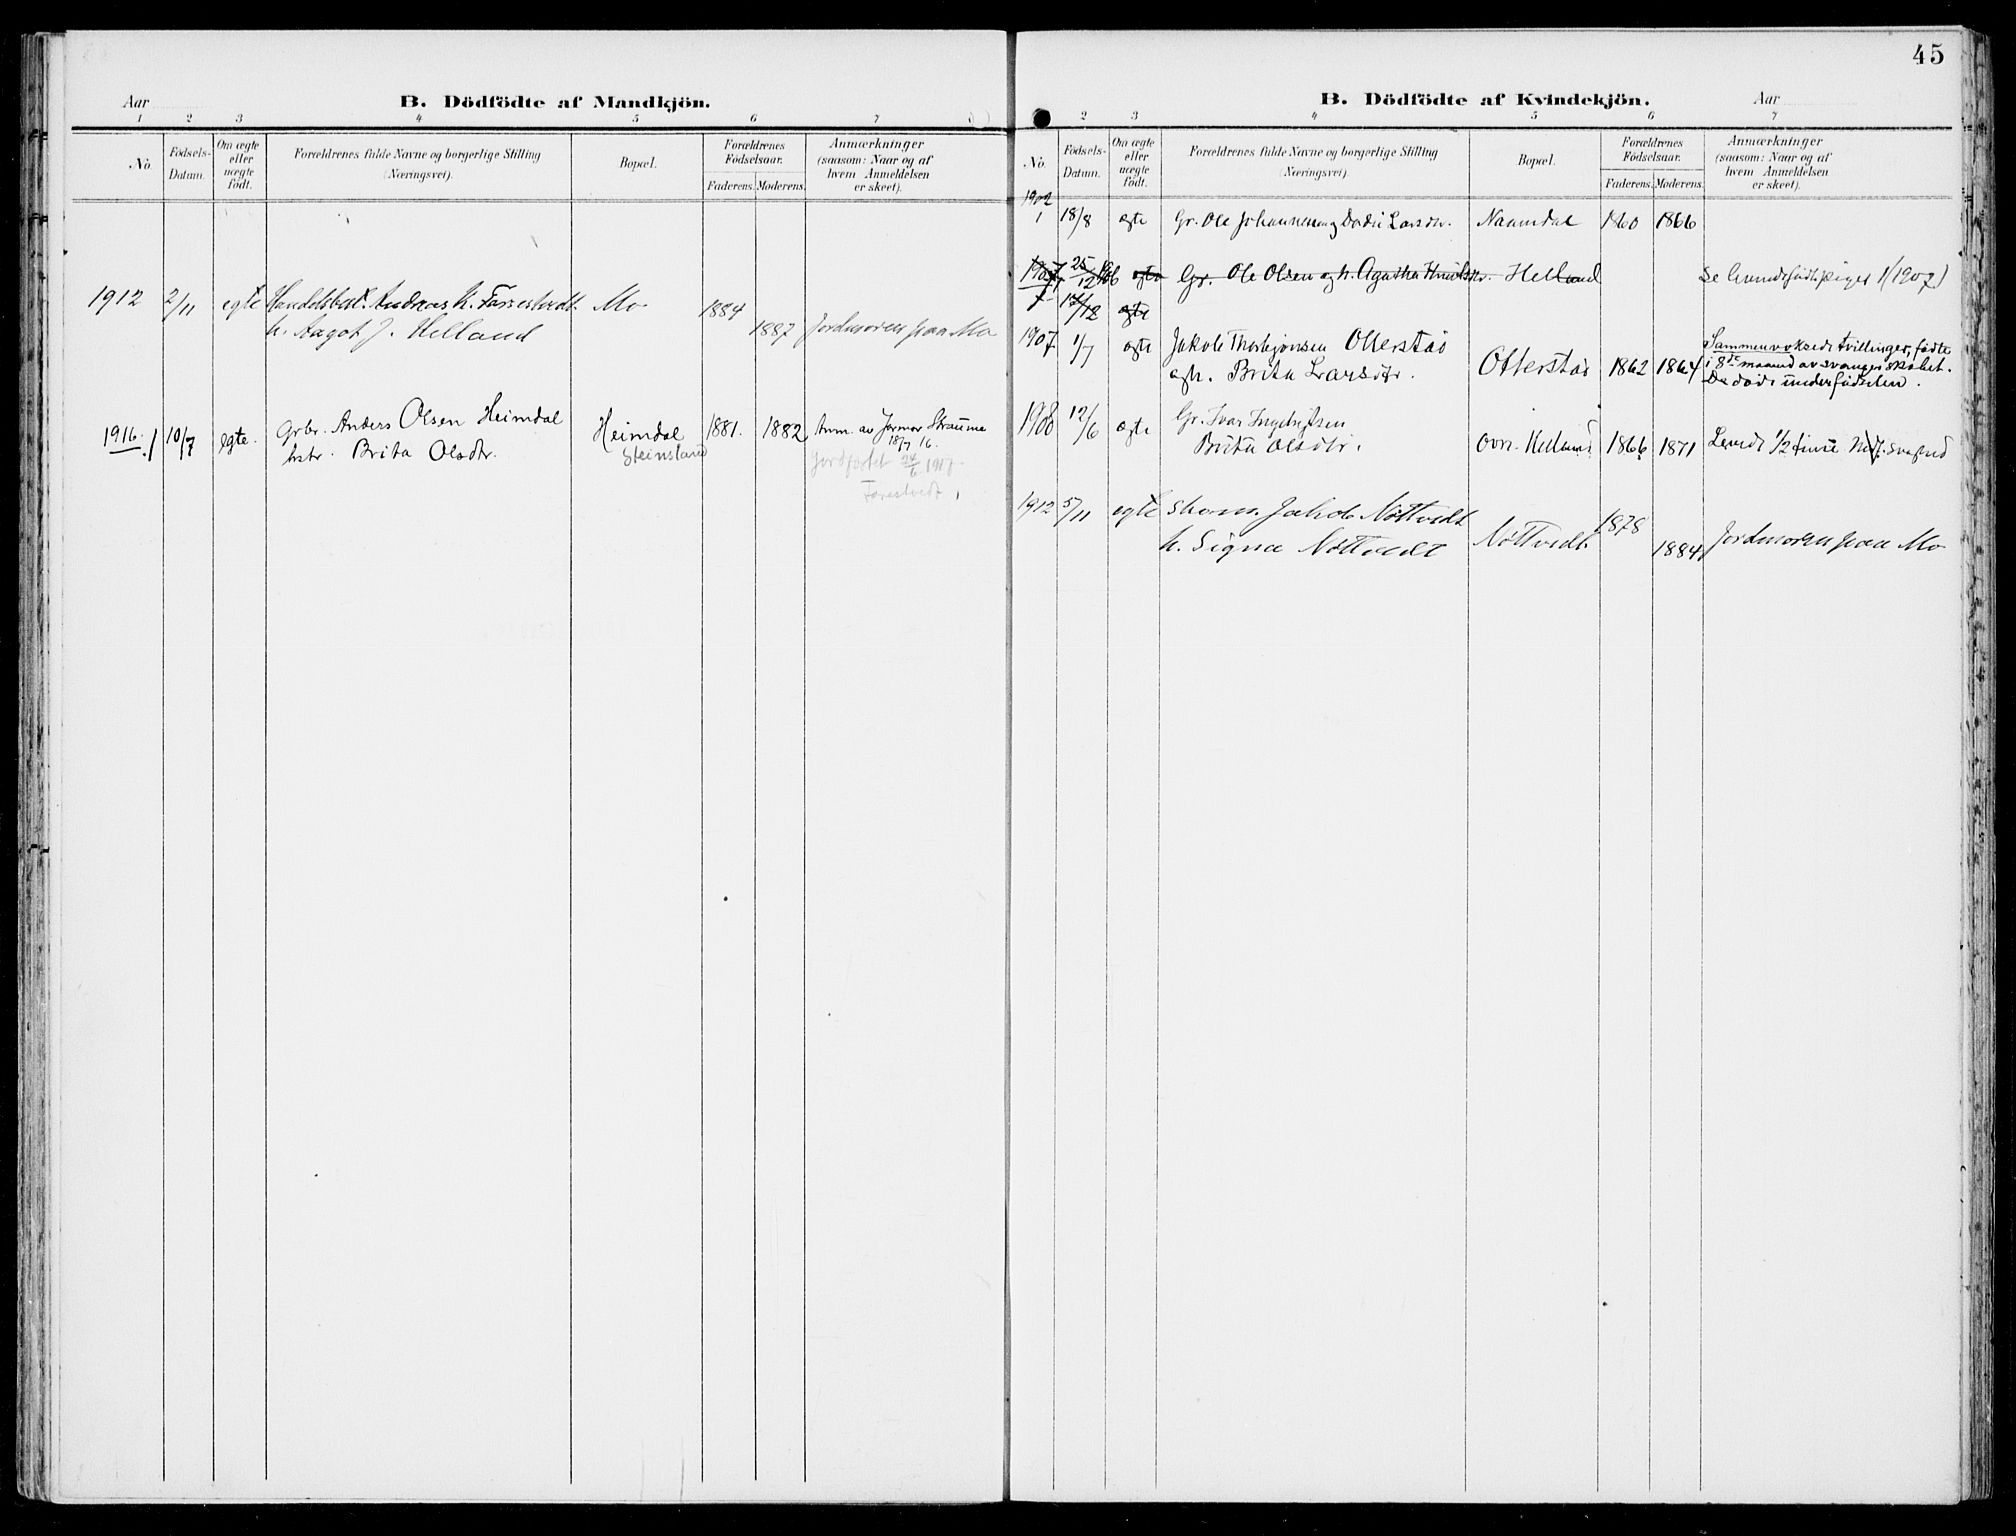 45
Aar
B. Dödfödte af Mandkjön.
1 2 3 4 5 6 7
No. Födsels-Datum. Om ægte eller uægte födt. Forældrenes fulde Navne og borgerlige Stilling (Næringsvei). Bopæl. Forældrenes Födselsaar. Faderens. Moderens. Anmærkninger (saasom: Naar og af hvem Anmeldelsen er skeet).
1912 2/11 egte Andreas K. Farestvedt Mo 1884
h. Aagot J. Helland 1887 Jordmoren paa Mo
1916. 1 10/7 egte. Grbr. Anders Olsen Heimdal Heimdal 1881. 1882 Anm. av Jormor Straume
hstr. Brita Olsdtr. Steinsland 18/7 16.
Jordfæstet 24/6 1917.
Farestvedt
B. Dödfödte af Kvindekjön.
Aar
2 3 4 5 6 7
No. Födsels-Datum. Om ægte eller uægte födt. Forældrenes fulde Navne og borgerlige Stilling (Næringsvei). Bopæl. Forældrenes Födselsaar. Faderens. Moderens. Anmærkninger (saasom: Naar og af hvem Anmeldelsen er skeet).
1902
1 18/8 ægte Gr. Ole Johannessen og Larsdtr. Naamdal 1860 1866
1907 25/12 06 ægte Gr. Ole Olsen og h. Agatha Helland Se 1/1907)
12 ægte
1907 1/7 ægte Jakob Thorbjønsen Otterstad Otterstad 1862 1864 Sammenvoksede tvillinger, fødte
og h. Brita Larsdtr. i 8de maaned av svangerskabet.
De døde under fødselen.
1908 12/6 ægte Gr. Ivar Ingebrigtsen
Brita Olsdtr. ovr. Helland 1866 1871 Levede 1/2 time.
1912 5/11 egte Jakob Nøttvedt Nøttvedt 1878
h. Signa Nøttvedt 1884 Jordmoren paa Mo